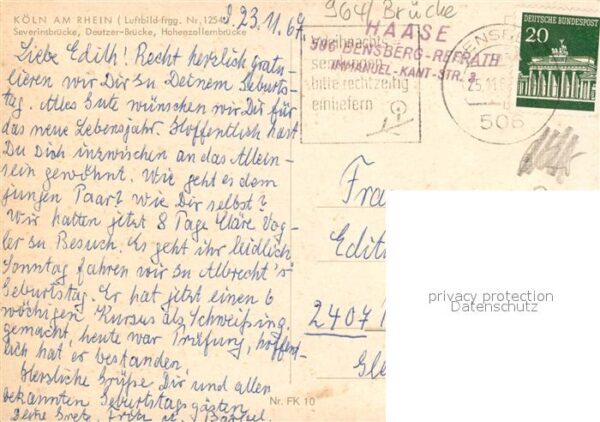 KÖLN AM RHEIN ( Luftbild frgg. Nr. 1254
Severinsbrücke, Deutzer-Brücke, Hohenzollernbrücke
23.11.67
Liebe Edith! Recht herzlich gratu-
lieren wir Dir zu Deinem Geburts-
tag. Alles Gute wünschen wir Dir für
das neue Lebensjahr. Hoffentlich hast
Du Dich inzwischen an das Allein-
sein gewöhnt. Wie geht es dem
jungen Paar? Wie Dir selbst?
Wir hatten jetzt 8 Tage Kläre Vog-
ler zu Besuch. Es geht ihr leidlich
Sonntag fahren wir zu Albrecht's
Geburtstag. Er hat jetzt einen 6
wöchigen Kursus als Schweißing.
gemacht, heute war Prüfung, hoffent-
lich hat er bestanden.
Herzliche Grüße Dir und allen
bekannten Geburtstagsgästen
Deine Grete, Fritz u.
Nr. FK 10
964/ Brücke
HAASE
506 BENSBERG-REFRATH
IMMANUEL-KANT-STR.
bitte rechtzeitig
einliefern
BENSBERG
25.11.6
506
DEUTSCHE BUNDESPOST
20
Fra
Edit
2407
Gle
privacy protection
Datenschutz